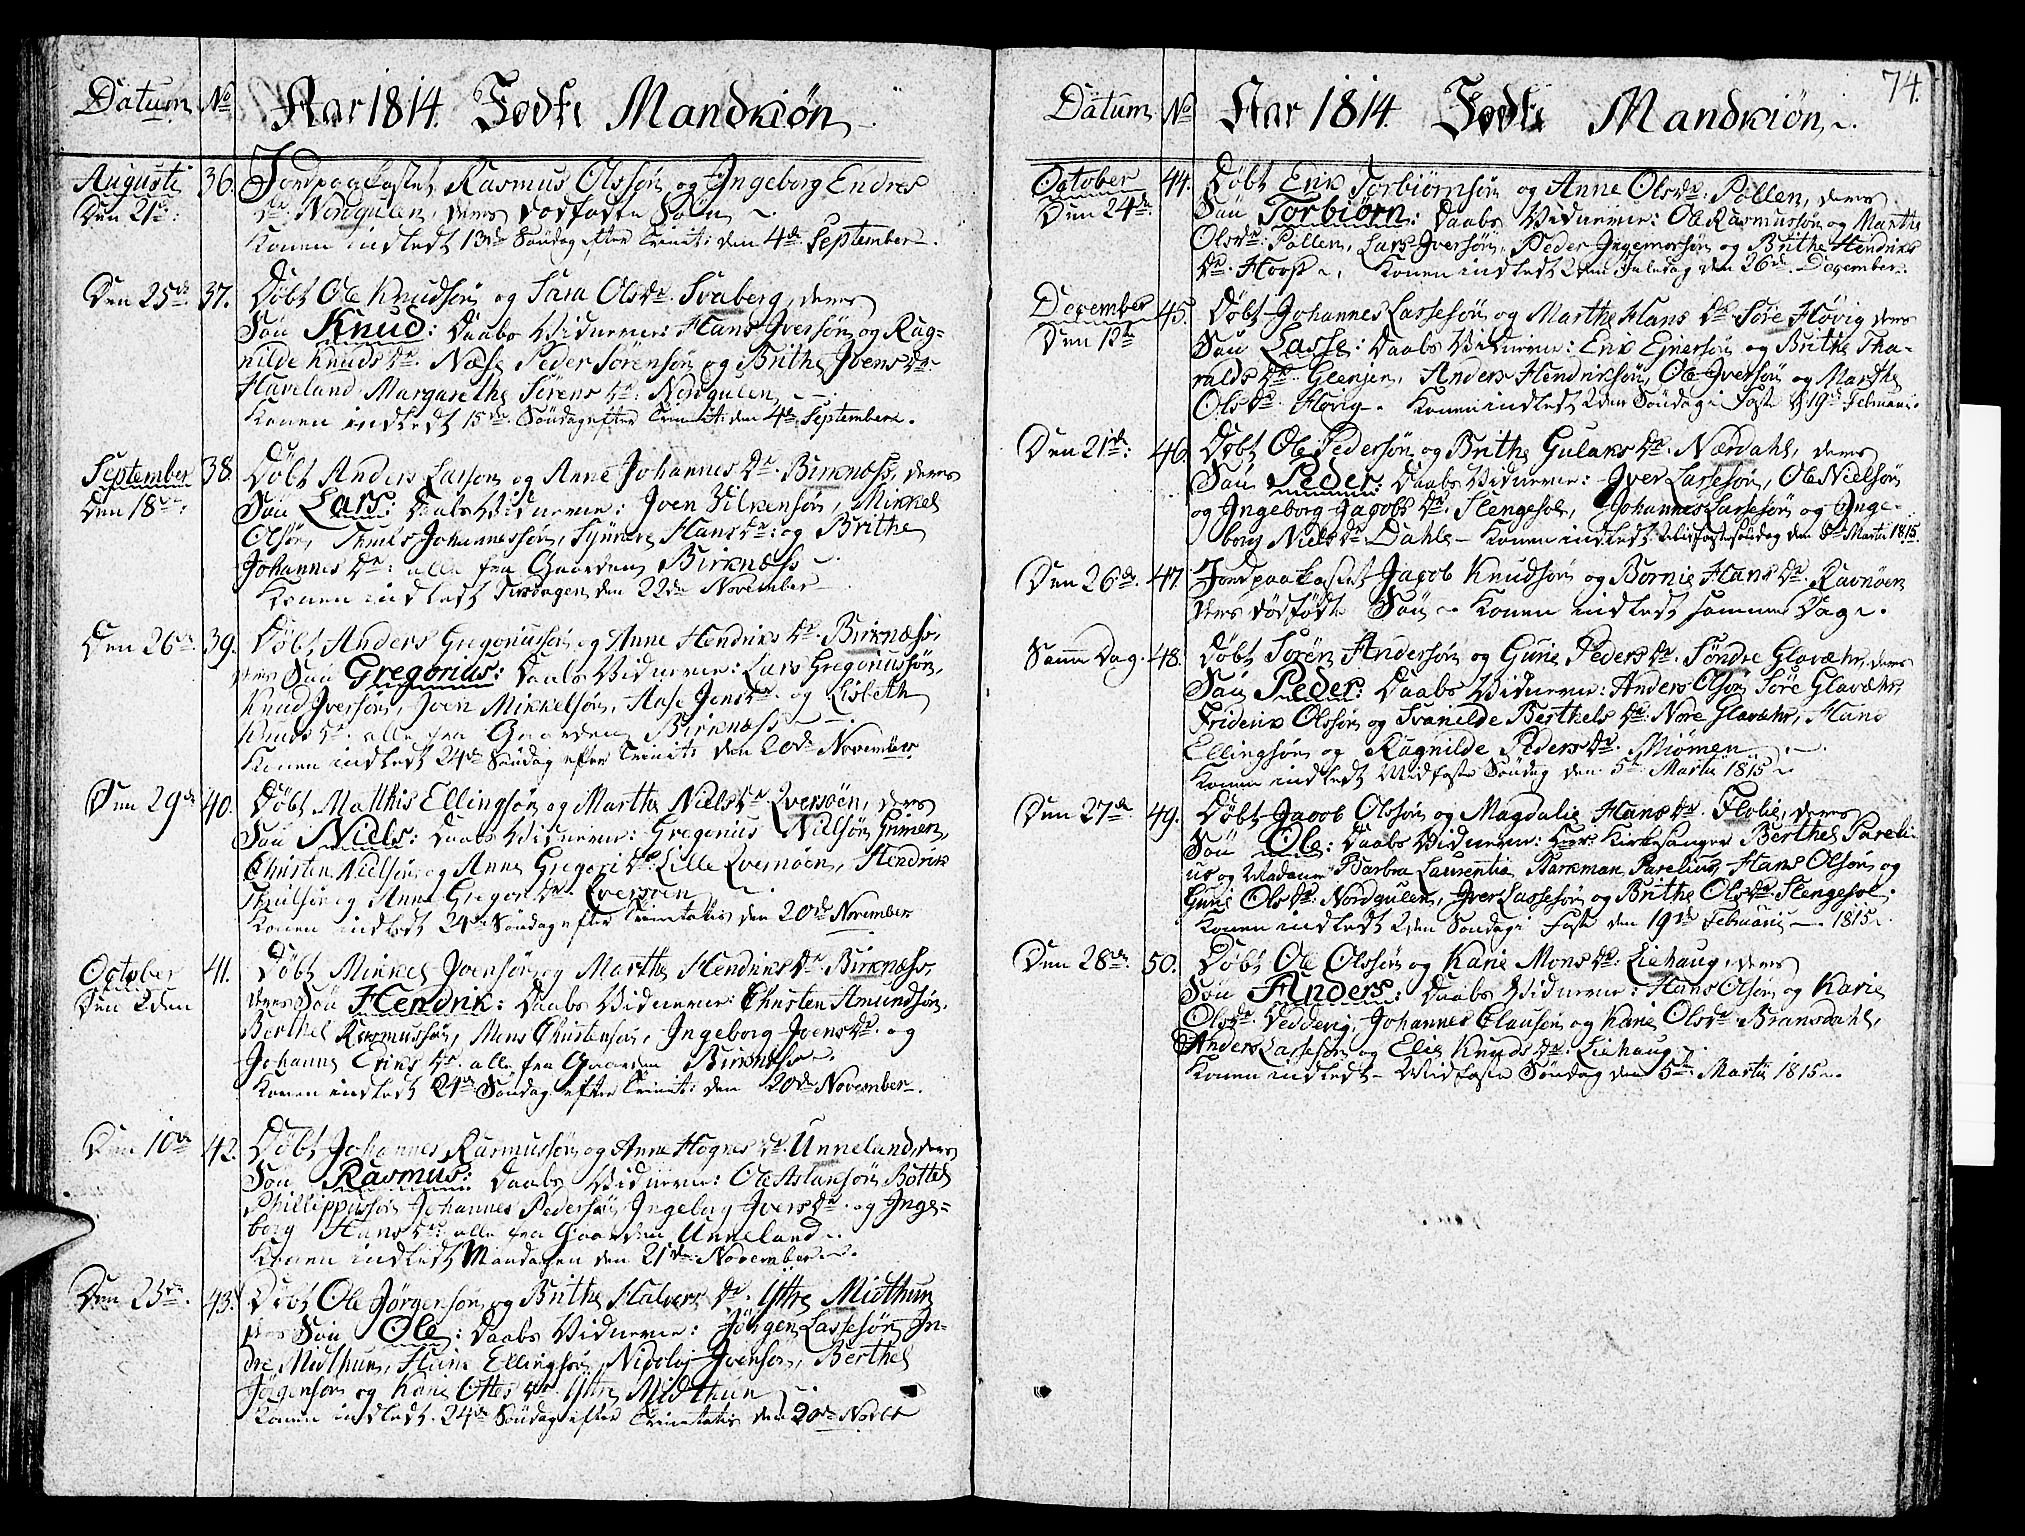 Datum No Aar 1814. Fødte Mandkiøn
Augusti 36. Jordpaakastet Rasmus Olssøn og Ingeborg Endres
Den 21de: dr. Nordgulen, deres dødfødte Søn
Konen indledt 13de Søndag efter Trinit: den 4de September.
Den 25de 37. Døbt Ole Knudsøn og Sara Olsdr. Svaberg, deres
Søn Knud: Daabs Vidnerne: Hans Iversøn og Rag-
nilde Knudsdr. Næse Peder Sørensøn og Brithe Joensdr.
Haveland Margarethe Sørensdr: Nordgulen
Konen indledt 15de Søndag efter Trinit: den 4de September.
September 38. Døbt Anders Larson og Anne Johannesdr. Birknæss, deres
Den 18de: Søn Lars: Daabs Vidnerne: Joen Vilkensøn, Mikkel
Olsøn, Johannessøn, Synneve Hansdr: og Brithe
Johannesdr: alle fra Gaarden Birknæss
Konen indledt Tirsdagen den 22de November
Den 26de 39. Døbt Anders Gregoriussøn og Anne Hendriksdr. Birknæss,
deres Søn Gregorius: Daabs Vidnerne: Lars Gregoriussøn,
Knud Iversøn, Joen Mikkelsøn, Aase Jensdr. og Lisbeth
Knudsdr. alle fra Gaarden Birknæss
Konen indledt 24de Søndag efter Trinit: den 20de November
Den 29de 40. Døbt Matthis Ellingsøn og Marthe Nielsdr. Qversøen, deres
Søn Niels: Daabs Vidnerne: Gregorius Nielsøn Grimen,
Christen Nielsøn og Anne Gregoridr. Lille Qvernøen, Hendrik
og Anne Gregoridr. Qversøen
Konen indledt 24de Søndag efter Trinitatis den 20de November
October 41. Døbt Mikkel Joensøn og Marthe Hendriksdr. Birknæss,
Den 2den deres Søn Hendrik: Daabs Vidnerne: Christen Amundsøn,
Berthel Rasmussøn, Mons Christensøn, Ingeborg Joensdr. og
Johanne Eriksdr. alle fra Gaarden Birknæss.
Konen indledt 24de Søndag efter Trinit: den 20de November.
Den 10de 42. Døbt Johannes Rasmussøn og Anne Hognesdr. Unneland, deres
Søn Rasmus: Daabs Vidnerne: Ole Aslaksøn, Bottel
Phillippussøn Johannes Pedersøn, Ingeborg Iversdr. og Inge-
borg Hansdr. alle fra Gaarden Unneland.
Konen indledt Mandagen den 21de November.
Den 23de. 43. Døbt Ole Jørgensøn og Brithe Halversdr. Ittre Midthun
deres Søn Ole: Daabs Vidnerne: Jørgen Lassesøn In-
dre Midthun, Ellingsøn, Nicolai Joensøn, Berthel
Jørgensøn og Karie Ottesdr. Ittre Midthun
Konen indledt 24de Søndag efter Trinitatis den 20de Novbr
74.
Datum No Aar 1814. Fødte Mandkiøn.
October 44. Døbt Erik Torbiørnsøn og Anne Olsdr: Pollen, deres
Den 24de. Søn Torbiørn: Daabs Vidnerne: Ole Rasmussøn og Marthe
Olsdr: Pollen, Lars Iversøn, Peder Ingemorsøn og Brithe Hendriks
dr. Hoop. Konen indledt 2den Juledag den 26de December.
December 45. Døbt Johannes Lassesøn og Marthe Hansdr. Søre Høvig deres
Den Søn Lasse: Daabs Vidnerne: Erik Einersøn og Brithe Tha-
raldsdr. Gienjen, Anders Hendriksøn, Ole Iversøn og Marthe
Olsdr. Høvig. Konen indledt 2den Søndag i Faste d: 19de Februarii
Den 21de: 46. Døbt Ole Pedersøn og Brithe Gulaksdr. Nærdahl, deres
Søn Peder: Daabs Vidnerne: Iver Lassesøn, Ole Nielsøn
og Ingeborg Jacobsdr. Stengesol, Johannes Lassesøn og Inge-
borg Nielsdr. Dahle. Konen indledt Midfastesøndag den 5te Martii 1815.
Den 26de. 47 Jordpaakastet Jacob Knudsøn og Bornie Hansdr. Ravnøen
deres dødfødte Søn. Konen indledt samme Dag.
Samme Dag. 48. Døbt Søren Andersøn og Gurie Pedersdr. Søndre Glavæhr, deres
Søn Peder: Daabs Vidnerne: Anders Olsøn Søre Glavæhr,
Friderik Olssøn og Svanilde Berthelsdr. Nore Glavæhr, Hans
Ellingsøn og Ragnilde Pedersdr. Miømen
Konen indledt Midfaste Søndag den 5te Martii 1815.
Den 27de 49. Døbt Jacob Olssøn og Magdalie Hansdr. Flolie, deres
Søn Ole: Daabs Vidnerne: Hr: Kirkesanger Berthel Pareli-
us og Madame Barbra Laurentia Barkman Parelius, Hans Olsøn og
Gurie Olsdr. Nordgulen, Iver Lassesøn og Brithe Olsdr. Stengesol.
Konen indledt 2den Søndag i Faste den 19de Februarii 1815.
Den 28de. 50. Døbt Ole Olssøn og Karie Monsdr. Liehaug, deres
Søn Anders: Daabs Vidnerne: Hans Olsøn og Karie
Olsdr. Vedvig, Johannes Clausøn og Karie Olsdr. Bransdahl,
Anders Lassesøn og Elie Knudsdr. Liehaug.
Konen indledt Midfaste Søndag den 5te Martii 1815.